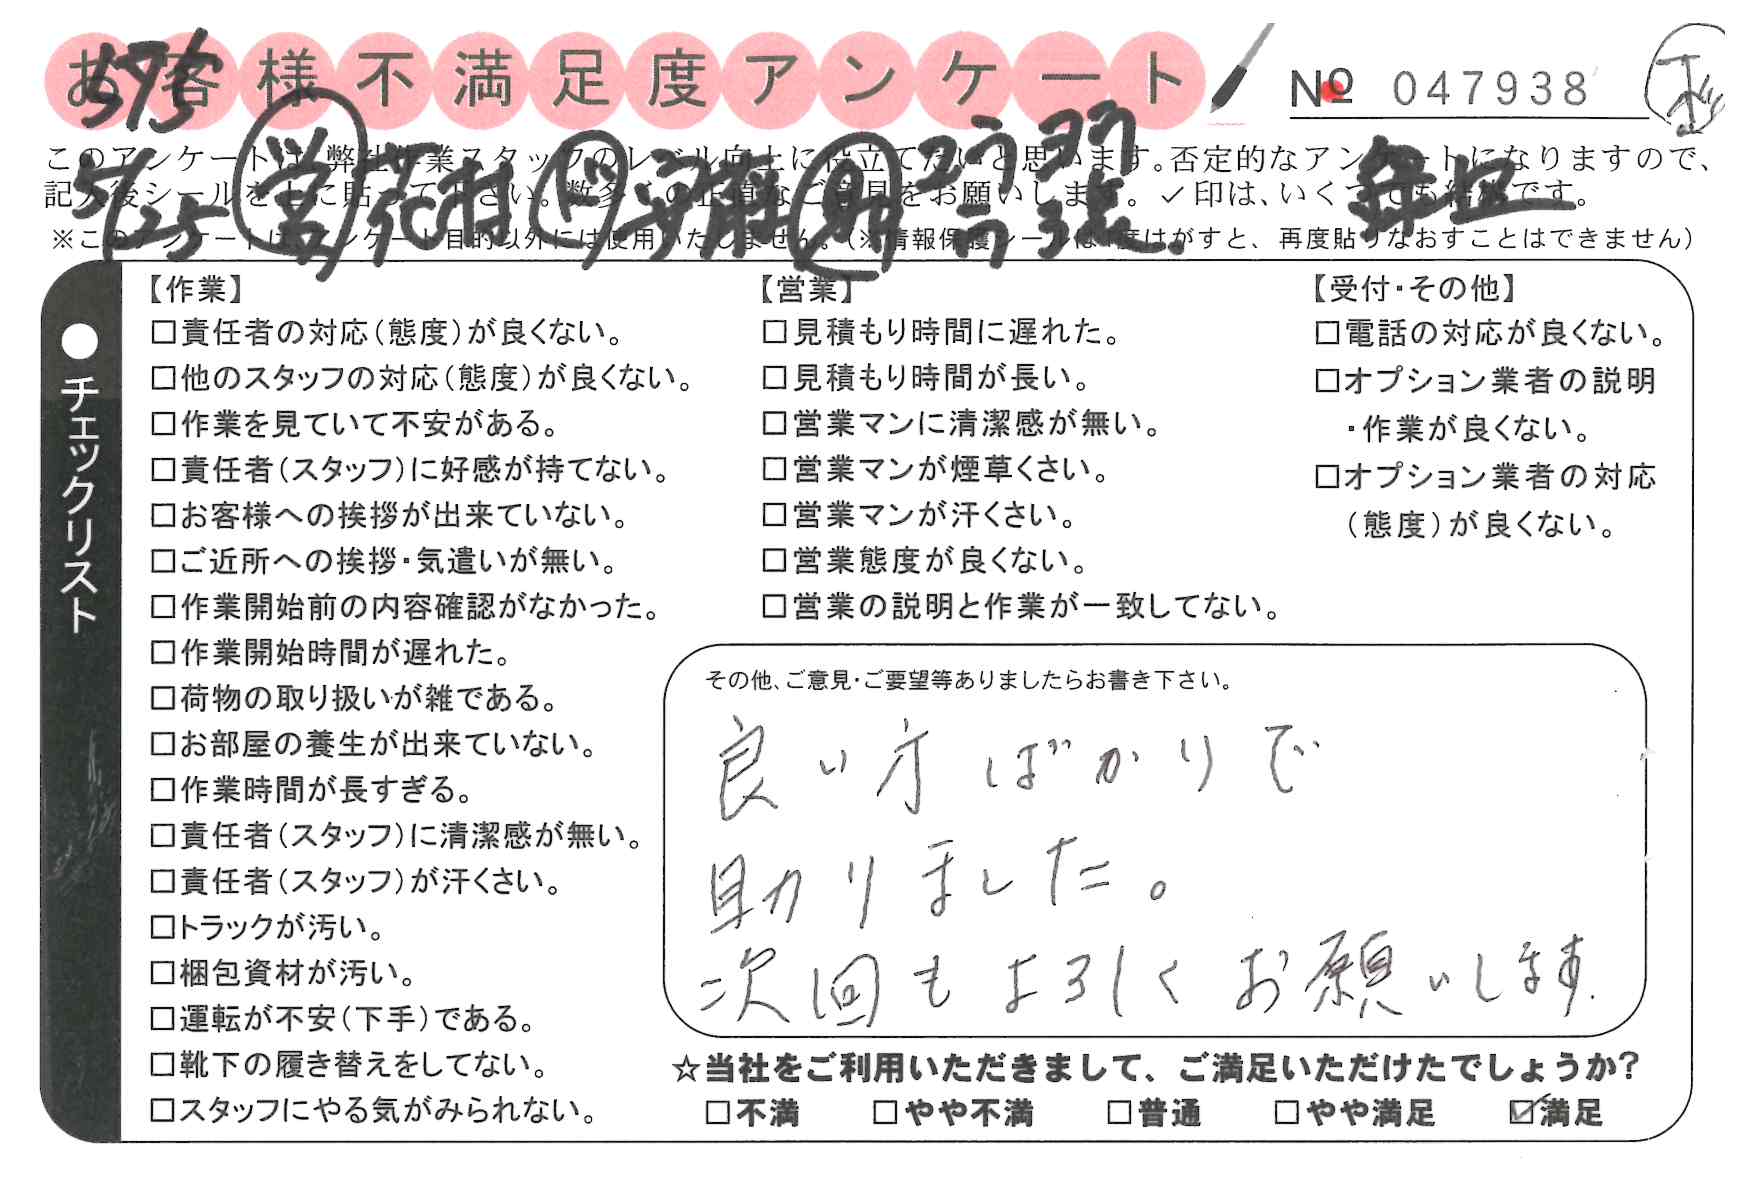 お客様不満足度アンケート
№ 047938
575
5/25 営 花村 ド 安藤 助
このアンケートは、弊社作業スタッフのレベル向上に役立てたいと思います。否定的なアンケートになりますので、
記入後シールを上に貼って下さい。数多くの正直なご意見をお願いします。✓印は、いくつでも結構です。
※このアンケートは、アンケート目的以外には使用いたしません。(※情報保護シールは1度はがすと、再度貼りなおすことはできません)
●チェックリスト
【作業】
□責任者の対応(態度)が良くない。
□他のスタッフの対応(態度)が良くない。
□作業を見ていて不安がある。
□責任者(スタッフ)に好感が持てない。
□お客様への挨拶が出来ていない。
□ご近所への挨拶・気遣いが無い。
□作業開始前の内容確認がなかった。
□作業開始時間が遅れた。
□荷物の取り扱いが雑である。
□お部屋の養生が出来ていない。
□作業時間が長すぎる。
□責任者(スタッフ)に清潔感が無い。
□責任者(スタッフ)が汗くさい。
□トラックが汚い。
□梱包資材が汚い。
□運転が不安(下手)である。
□靴下の履き替えをしてない。
□スタッフにやる気がみられない。
【営業】
□見積もり時間に遅れた。
□見積もり時間が長い。
□営業マンに清潔感が無い。
□営業マンが煙草くさい。
□営業マンが汗くさい。
□営業態度が良くない。
□営業の説明と作業が一致してない。
【受付・その他】
□電話の対応が良くない。
□オプション業者の説明
・作業が良くない。
□オプション業者の対応
(態度)が良くない。
その他、ご意見・ご要望等ありましたらお書き下さい。
良い方ばかりで
助かりました。
次回もよろしくお願いします.
☆当社をご利用いただきまして、ご満足いただけたでしょうか?
□不満 □やや不満 □普通 □やや満足 ☑満足